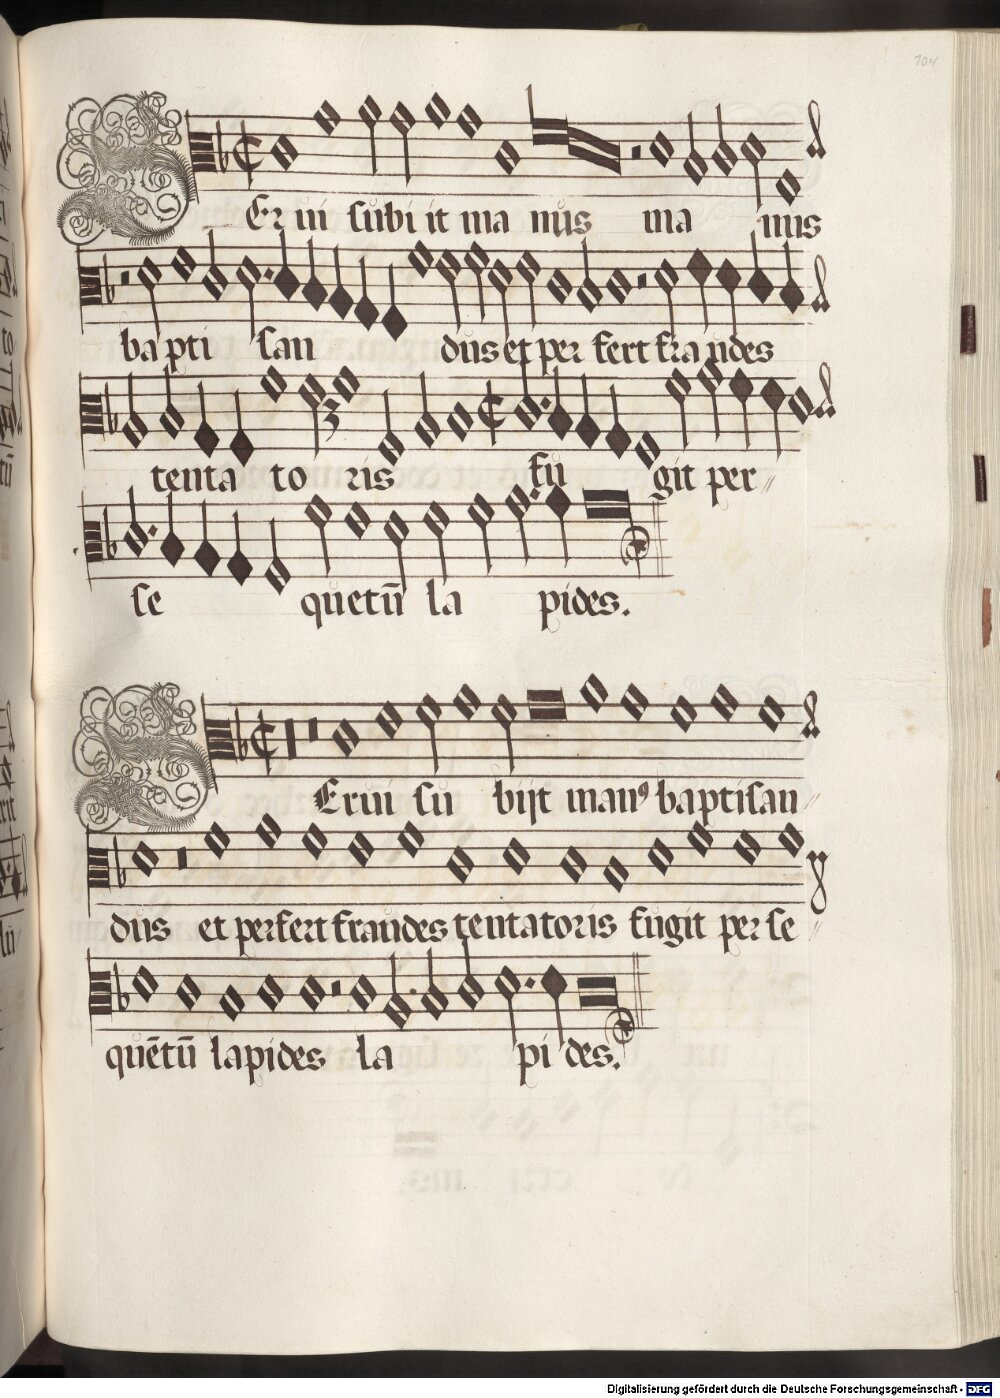 104
Serui subi it ma nus ma nus
ba pti san dus et per fert fraudes
tenta to ris fu git per
se quetū la pides.
Serui su bijt manꝰ baptisan
dus et perfert fraudes tentatoris fugit per se
quētū lapides la pi des.
Digitalisierung gefördert durch die Deutsche Forschungsgemeinschaft - DFG